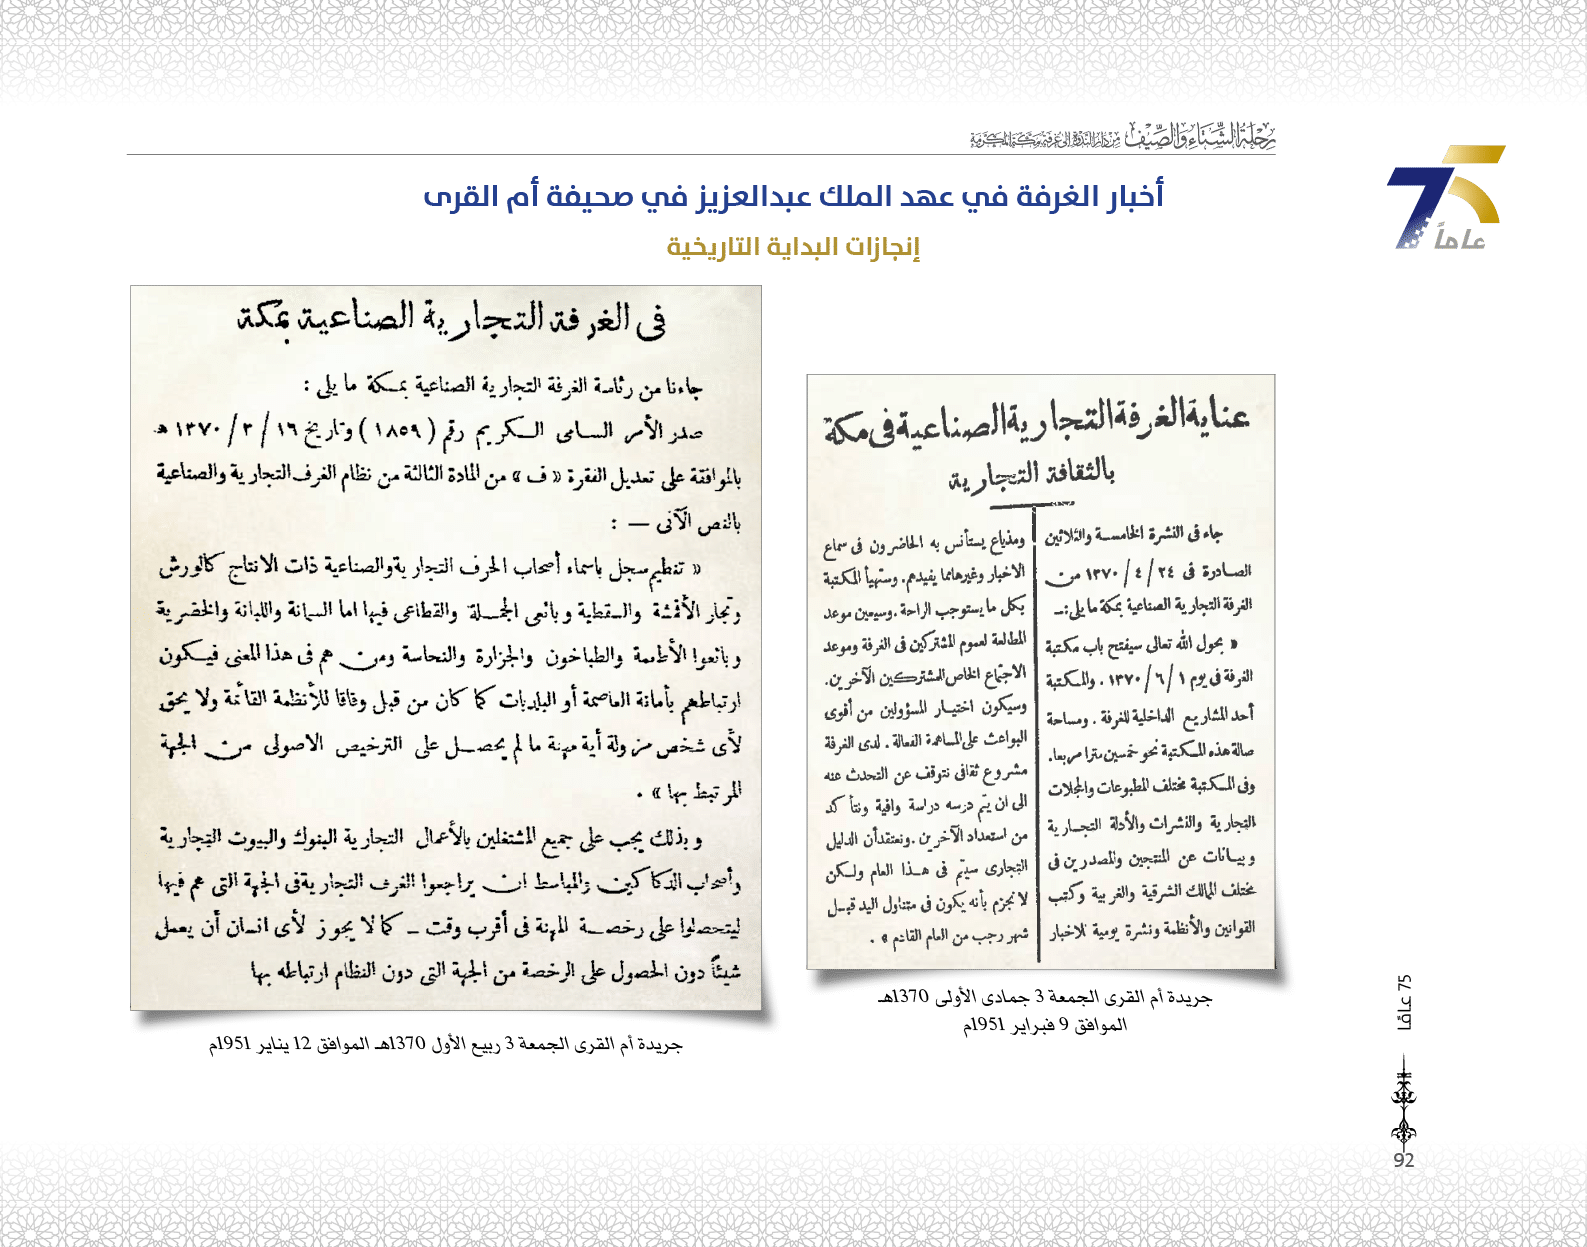 رحلة الشتاء والصيف من دار الندوة إلى غرفة مكة المكرمة
75
عاماً
أخبار الغرفة في عهد الملك عبدالعزيز في صحيفة أم القرى
إنجازات البداية التاريخية
عناية الغرفة التجارية الصناعية فى مكة
بالثقافة التجارية
جاء فى النشرة الخامسة والثلاثين
الصادرة فى ٢٤ / ٤ / ١٣٧٠ من
الغرفة التجارية الصناعية بمكة ما يلى :ـ
« بحول الله تعالى سيفتح باب مكتبة
الغرفة فى يوم ١ / ٦ / ١٣٧٠ . والمكتبة
أحد المشاريع الداخلية للغرفة . ومساحة
صالة هذه المكتبة نحو خمسين مترا مربعا.
وفى المكتبة مختلف المطبوعات والمجلات
التجارية والنشرات والأدلة التجارية
وبيانات عن المنتجين والمصدرين فى
مختلف الممالك الشرقية والغربية وكتب
القوانين والأنظمة ونشرة يومية للاخبار
ومذياع يستأنس به الحاضرون فى سماع
الاخبار وغيرها مما يفيدهم. وستهيأ المكتبة
بكل ما يستوجب الراحة . وسيعين موعد
المطالعة لعموم المشتركين فى الغرفة وموعد
الاجتماع الخاص للمشتركين الآخرين.
وسيكون اختيار المسؤولين من أقوى
البواعث على المساهمة الفعالة . لدى الغرفة
مشروع ثقافى نتوقف عن التحدث عنه
الى ان يتم درسه دراسة وافية ونتأكد
من استعداد الآخرين . ونعتقد أن الدليل
التجارى سيتم فى هذا العام ولكن
لا نجزم بأنه يكون فى متناول اليد قبل
شهر رجب من العام القادم » .
جريدة أم القرى الجمعة 3 جمادى الأولى 1370هـ
الموافق 9 فبراير 1951م
فى الغرفة التجارية الصناعية بمكة
جاءنا من رئاسة الغرفة التجارية الصناعية بمكة ما يلى :
صدر الأمر السامى الكريم رقم ( ١٨٥٩ ) وتاريخ ١٦ / ٣ / ١٣٧٠ هـ
بالموافقة على تعديل الفقرة « ف » من المادة الثالثة من نظام الغرف التجارية والصناعية
بالنص الآتى — :
« تنظيم سجل باسماء أصحاب الحرف التجارية والصناعية ذات الانتاج كالورش
وتجار الأقمشة والسقطية وبائعى الجملة والقطاعى فيها اما السمانة واللبانة والخضرية
وبائعوا الأطعمة والطباخون والجزارة والنحاسة ومن هم فى هذا المعنى فيكون
ارتباطهم بأمانة العاصمة أو البلديات كما كان من قبل وفاقا للأنظمة القائمة ولا يحق
لأى شخص مزولة أية مهنة ما لم يحصل على الترخيص الاصولى من الجهة
المرتبط بها » .
وبذلك يجب على جميع المشتغلين بالأعمال التجارية البنوك والبيوت التجارية
وأصحاب الدكاكين والمباسط ان يراجعوا الغرف التجارية فى الجهة التى هم فيها
ليتحصلوا على رخصة المهنة فى أقرب وقت ـ كما لا يجوز لأى انسان أن يعمل
شيئاً دون الحصول على الرخصة من الجهة التى دون النظام ارتباطه بها
جريدة أم القرى الجمعة 3 ربيع الأول 1370هـ الموافق 12 يناير 1951م
75 عامًا
92